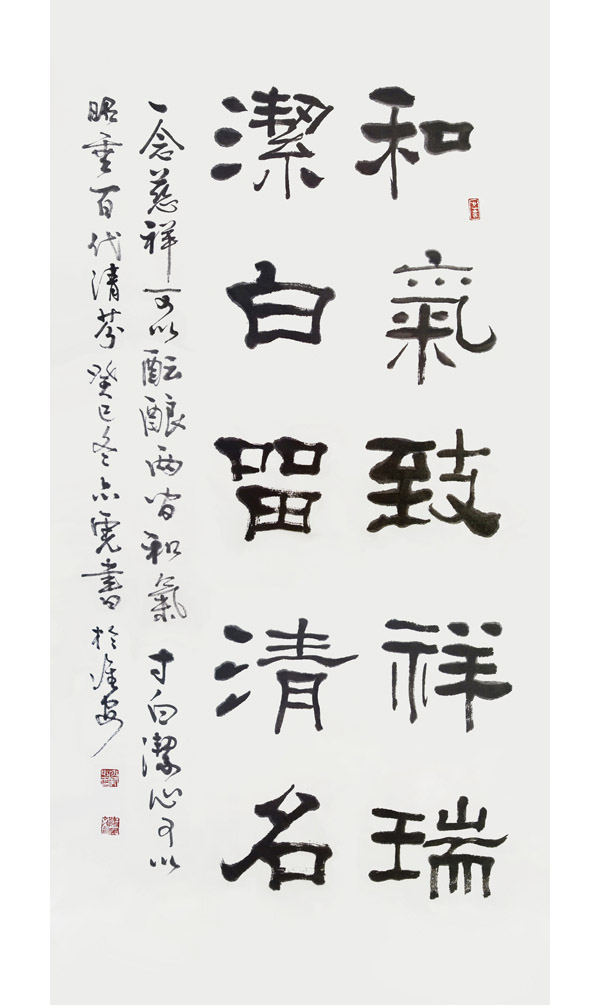 和氣致祥瑞
潔白留清名
一念慈祥可以酝酿两间和氣寸白潔心可以
昭垂百代清芬癸巳冬亦書於淮安